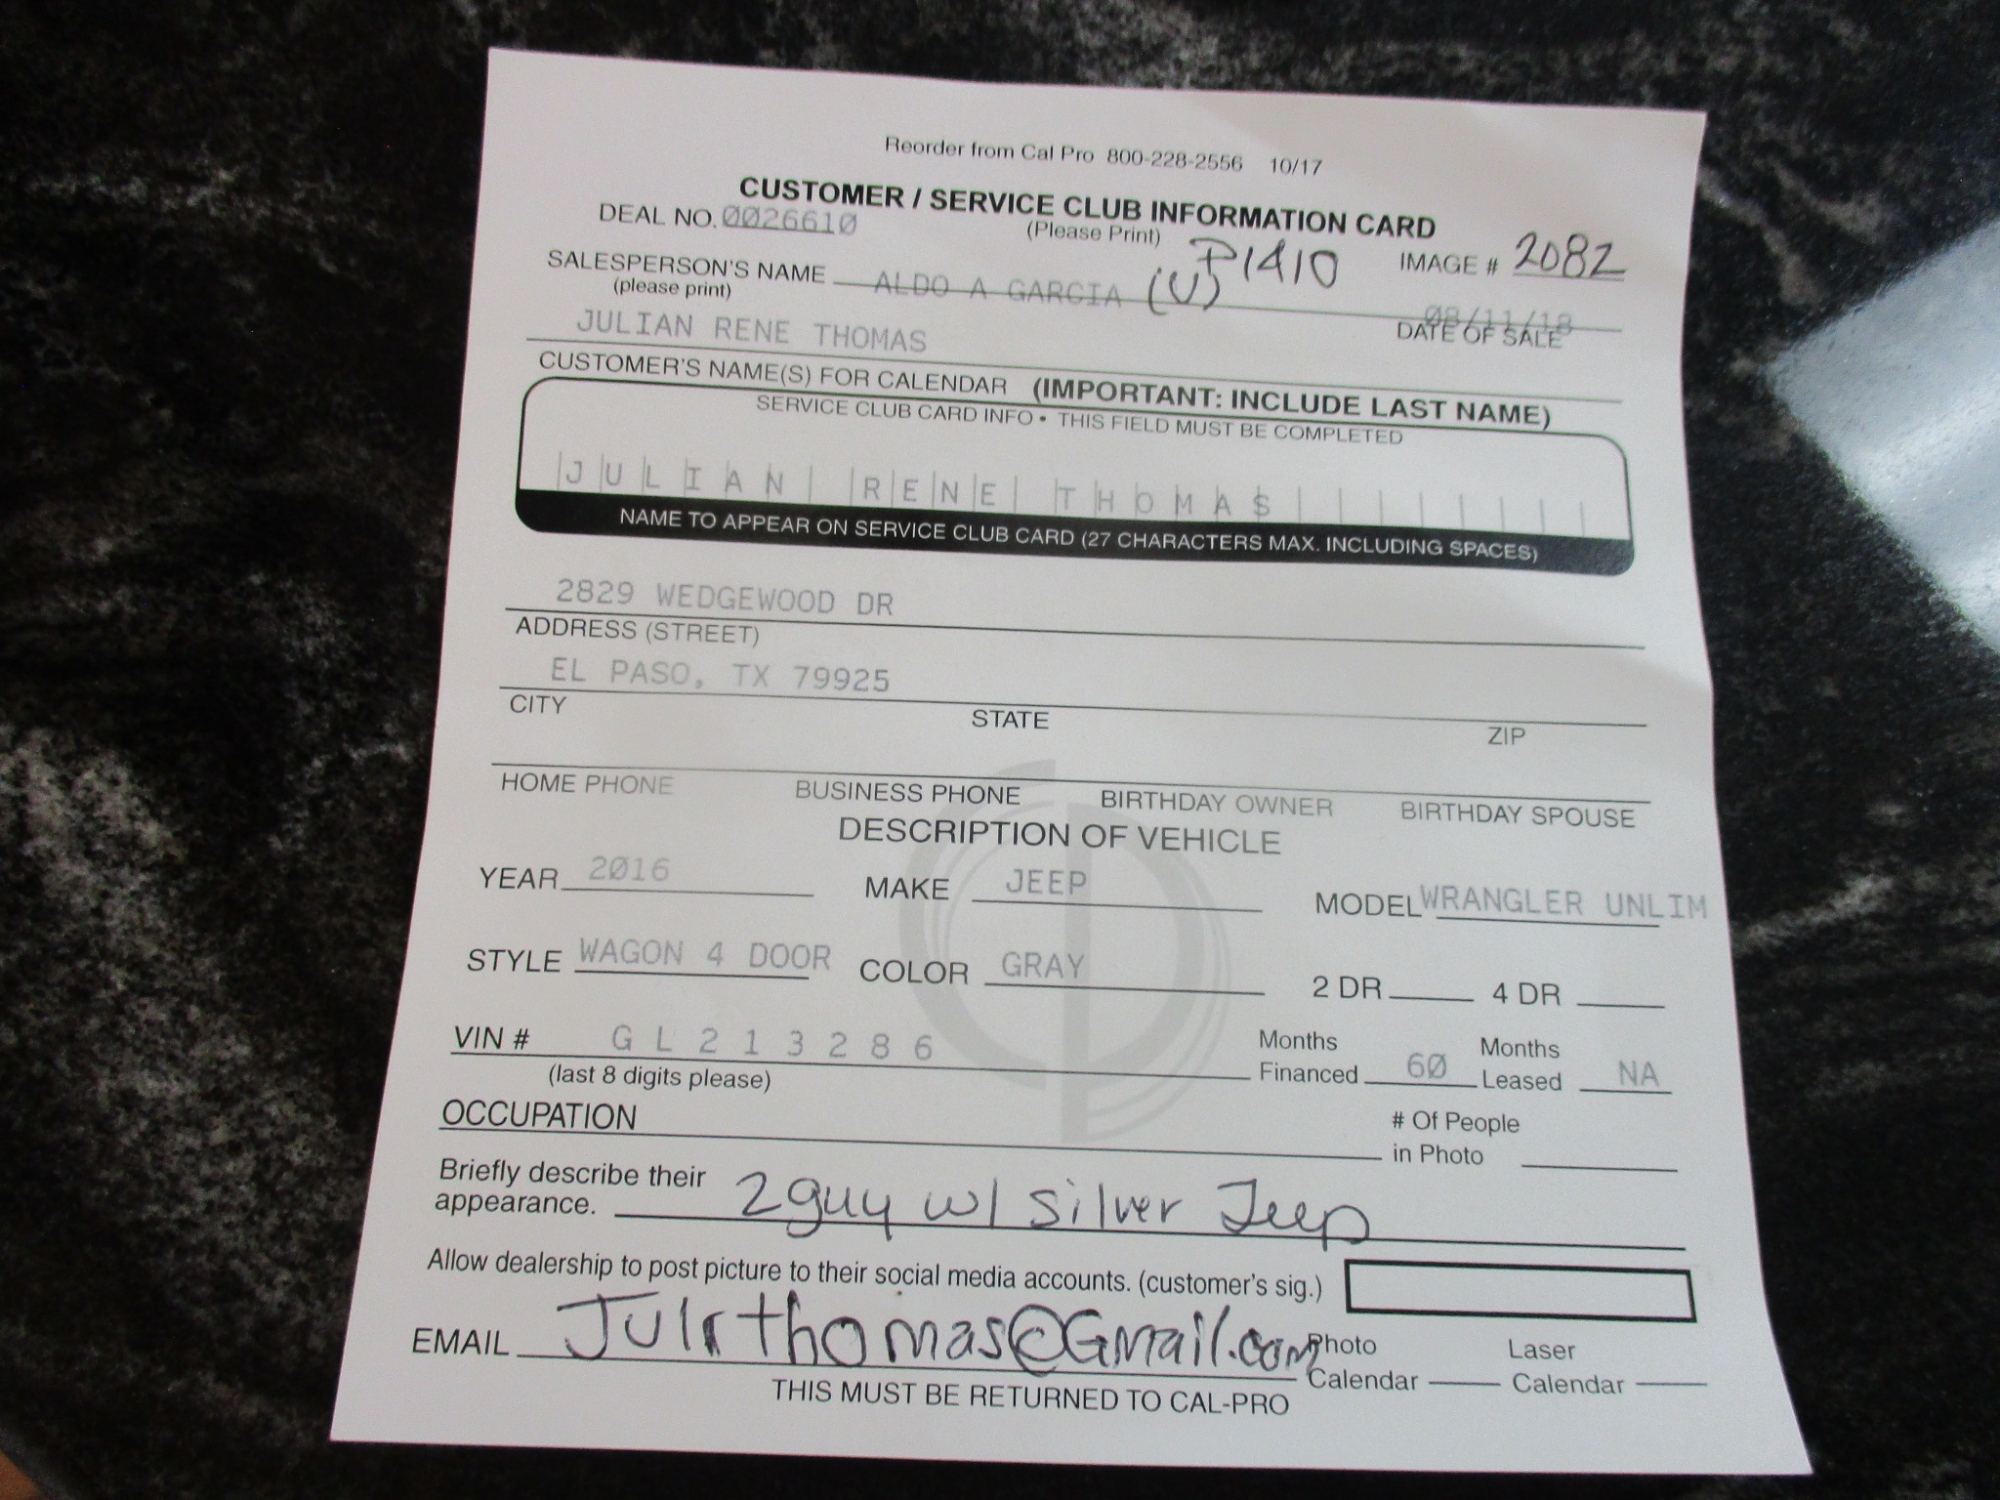 Reorder from Cal Pro 800-228-2556 10/17
CUSTOMER / SERVICE CLUB INFORMATION CARD
DEAL NO. 0026610 (Please Print)
SALESPERSON'S NAME ALDO A GARCIA (U) P1410 IMAGE # 2082
(please print)
JULIAN RENE THOMAS 08/11/18
DATE OF SALE
CUSTOMER'S NAME(S) FOR CALENDAR (IMPORTANT: INCLUDE LAST NAME)
SERVICE CLUB CARD INFO • THIS FIELD MUST BE COMPLETED
JULIAN RENE THOMAS
NAME TO APPEAR ON SERVICE CLUB CARD (27 CHARACTERS MAX. INCLUDING SPACES)
2829 WEDGEWOOD DR
ADDRESS (STREET)
EL PASO, TX 79925
CITY STATE ZIP
HOME PHONE BUSINESS PHONE BIRTHDAY OWNER BIRTHDAY SPOUSE
DESCRIPTION OF VEHICLE
YEAR 2016 MAKE JEEP MODEL WRANGLER UNLIM
STYLE WAGON 4 DOOR COLOR GRAY 2 DR 4 DR
VIN # G L 2 1 3 2 8 6 Months Financed 60 Months Leased NA
(last 8 digits please)
OCCUPATION # Of People in Photo
Briefly describe their appearance. 2 guy w/ silver Jeep
Allow dealership to post picture to their social media accounts. (customer's sig.)
EMAIL Photo Calendar Laser Calendar
THIS MUST BE RETURNED TO CAL-PRO